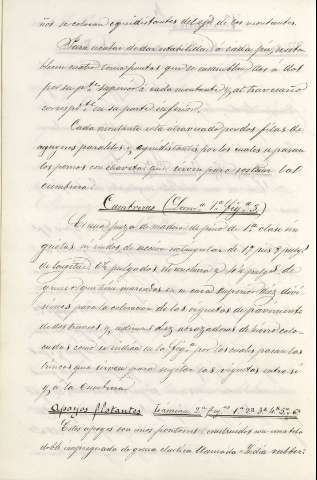 ños se colocan equidistantes del eje de los montantes.
Para acabar de dar estabilidad a cada pié, se esta-
blecen cuatro torna-puntas que se ensamblan dos á dos
por su p.te superior á cada montante y al travesaño
corresp.te en su parte inferior.
Cada montante está atravesado por dos filas de
agujeros paralelos y equidistantes por los cuales se pasan
los pernos con chaveta que sirven para sostener la
cumbrera.
Cumbreras (Lám.a 1.a fig.a 3.)
Es una pieza de madera de pino de 1.a clase sin
nudos de sección rectangular de 17 pies y pulg.s
de longitud 6 pulgadas de anchura y de
grueso que lleva marcadas en su cara superior diez divi-
siones para la colocación de las viguetas de pavimento
de dos tramos y además diez abrazaderas de hierro colo-
cadas como se indica en la fig.a por las cuales pasan las
trincas que sirven para sujetar las viguetas entre sí
y á la Cumbrera.
Apoyos flotantes Lámina 2.a fig.as 1.a 2.a 3.a 4.a 5.a 6.a
Estos apoyos son unos pontones construidos con una tela
doble impregnada de goma elástica llamada India rubber.